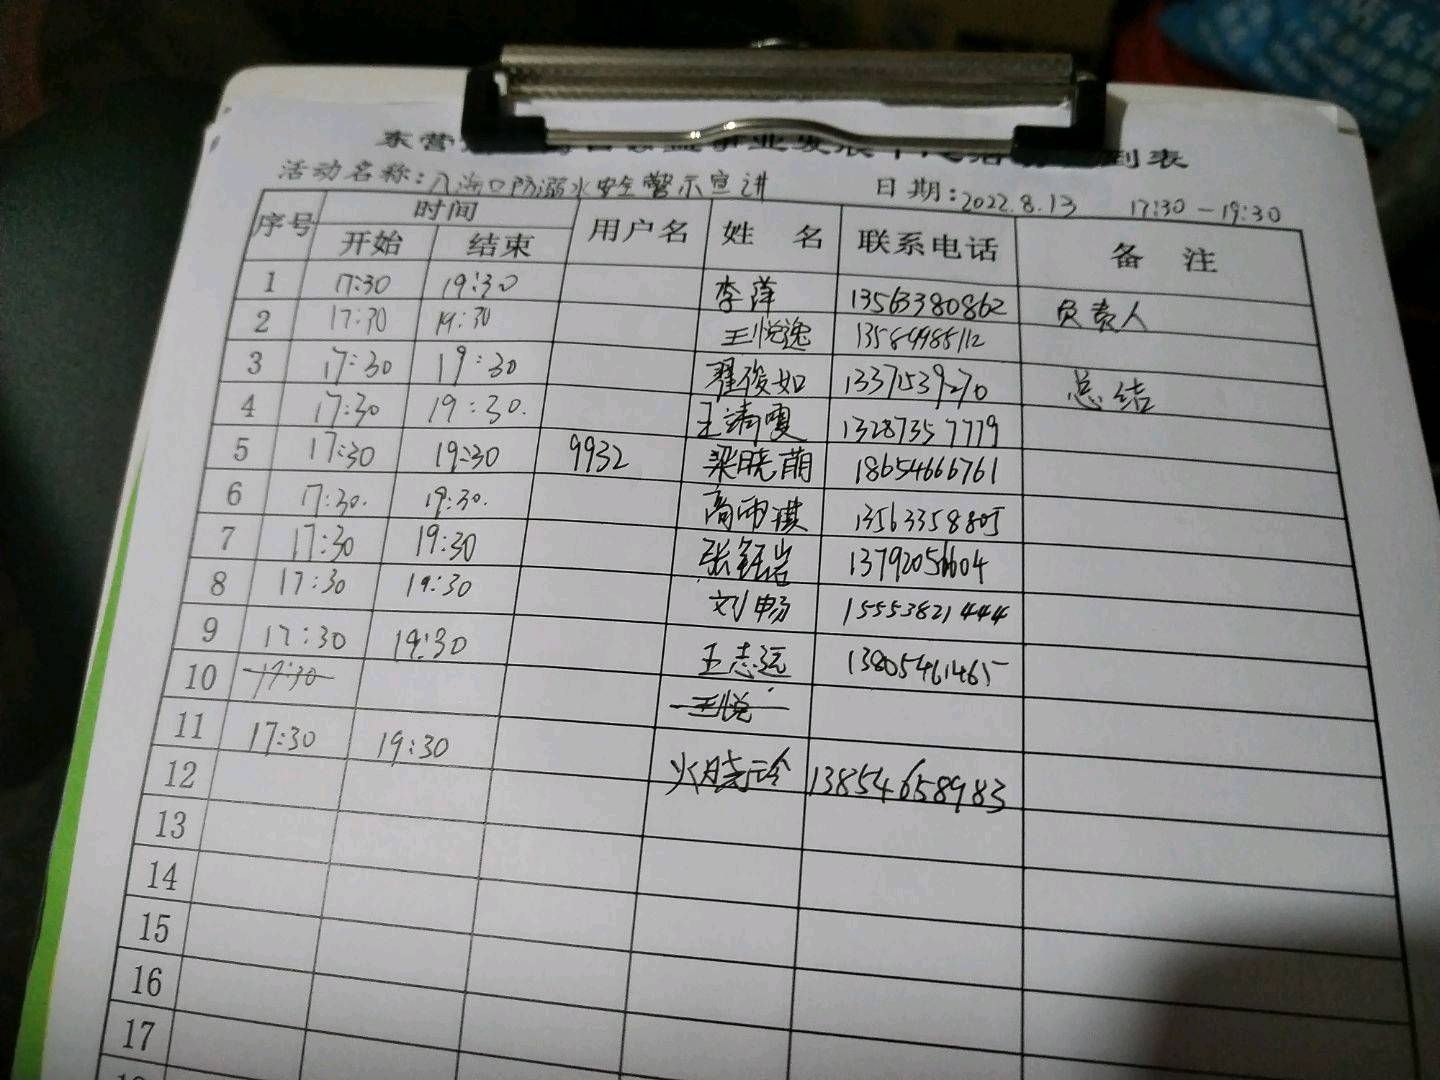 东营
发展中心活动 到表
活动名称:入海口防溺水安全警示宣讲 日期:2022.8.13 17:30-19:30
序号 时间 用户名 姓 名 联系电话 备 注
开始 结束
1 17:30 19:30 李萍 13563380862 负责人
2 17:30 19:30 王悦逸 13589985112
3 17:30 19:30 翟俊如 13371539270 总结
4 17:30 19:30. 王靖雯 13287357779
5 17:30 19:30 9932 梁晓萌 18654666761
6 17:30. 19:30. 高雨琪 13563358805
7 17:30 19:30 张钰岩 13792056604
8 17:30 19:30 刘畅 15553821444
9 17:30 19:30 王志远 13805461465
10 17:30 王悦
11 17:30 19:30 火晓玲 13854658983
12
13
14
15
16
17